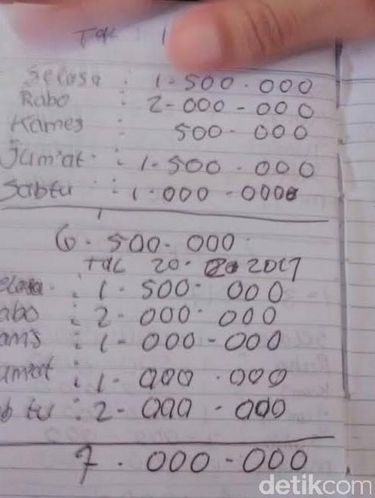 Tgl : 1
Selasa : 1-500.000
Rabo : 2-000-000
Kames : 500-000
Jum'at : 1-500.000
Sabtu : 1-000-000
6.500-000
Tgl 20- 2017
elasa : 1-500-000
abo : 2-000-000
ams : 1-000-000
umat : 1-000.000
ab tu : 2-000-000
7.000-000
detikcom